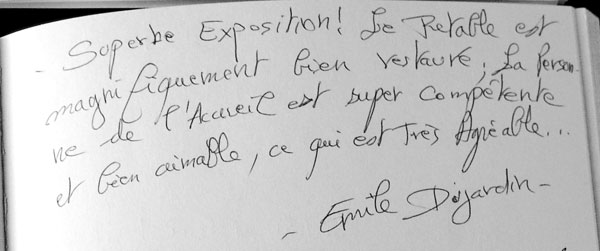 - Superbe Exposition! Le Retable est
magnifiquement bien restauré, La Person-
ne de l'Accueil est super compétente
et bien aimable, ce qui est Très Agréable...
- Emile Dejardin -